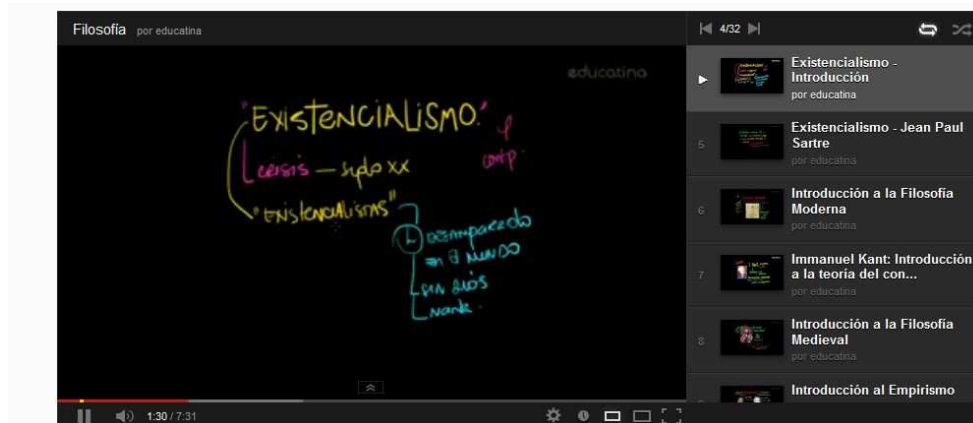 Filosofía por educatina
educatina
"EXISTENCIALISMO."
crisis — siglo XX
"EXISTENCIALISTAS"
DESAMPARADO
en EL MUNDO
SIN DIOS
1:30 / 7:31
4/32
Existencialismo -
Introducción
por educatina
5
Existencialismo - Jean Paul
Sartre
por educatina
6
Introducción a la Filosofía
Moderna
por educatina
7
Immanuel Kant: Introducción
a la teoría del con...
por educatina
8
Introducción a la Filosofía
Medieval
por educatina
Introducción al Empirismo